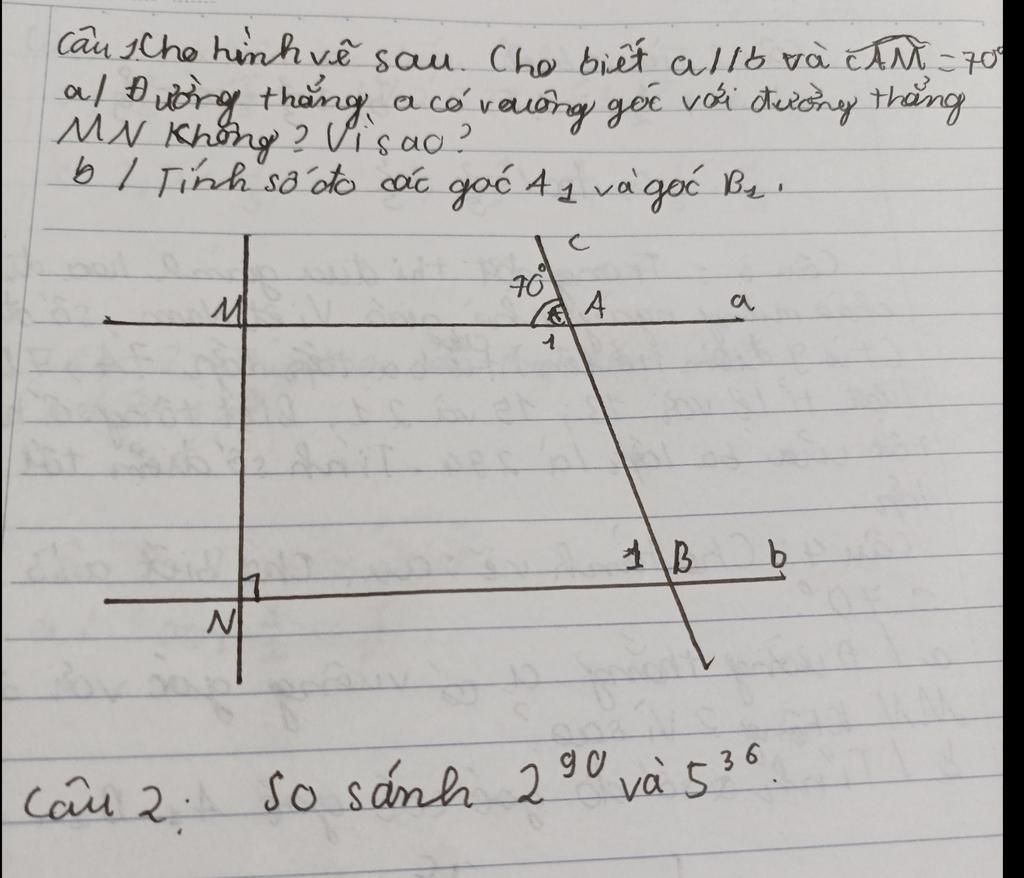 Câu 1. Cho hình vẽ sau. Cho biết a//b và CAM = 70°
a/ Đường thẳng a có vuông góc với đường thẳng
MN không? Vì sao?
b/ Tính số đo các góc A1 và góc B1.
C
70°
M
A
a
1
1
B
b
N
Câu 2: So sánh 2^90 và 5^36.